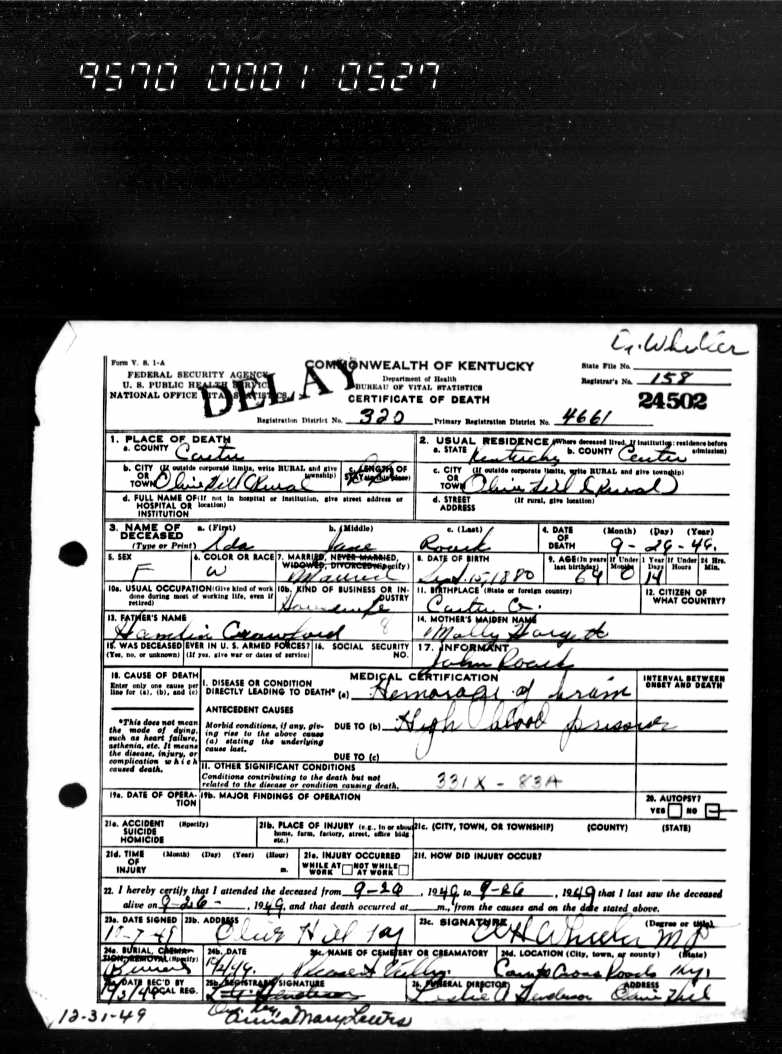 9570 0001 0527
Dr. Wheeler
Form V. S. 1-A
FEDERAL SECURITY AGENCY
U. S. PUBLIC HEALTH SERVICE
NATIONAL OFFICE VITAL STATISTICS
DELAY
COMMONWEALTH OF KENTUCKY
Department of Health
BUREAU OF VITAL STATISTICS
CERTIFICATE OF DEATH
State File No.
Registrar's No. 158
24502
Registration District No. 320 Primary Registration District No. 4661
1. PLACE OF DEATH
a. COUNTY Carter
2. USUAL RESIDENCE (Where deceased lived. If institution: residence before admission)
a. STATE Kentucky b. COUNTY Carter
b. CITY (If outside corporate limits, write RURAL and give township) OR TOWN Olive Hill (Rural)
c. LENGTH OF STAY (in this place)
c. CITY (If outside corporate limits, write RURAL and give township) OR TOWN Olive Hill (Rural)
d. FULL NAME OF (If not in hospital or institution, give street address or location) HOSPITAL OR INSTITUTION
d. STREET ADDRESS (If rural, give location)
3. NAME OF DECEASED (Type or Print) a. (First) Ida b. (Middle) Jane c. (Last) Roark
4. DATE OF DEATH (Month) (Day) (Year) 9-26-49.
5. SEX F
6. COLOR OR RACE W
7. MARRIED, NEVER MARRIED, WIDOWED, DIVORCED (Specify) Married
8. DATE OF BIRTH Sept. 15, 1880
9. AGE (In years last birthday) 69 If Under 1 Year Months 0 Days 14 If Under 24 Hrs. Hours Min.
10a. USUAL OCCUPATION (Give kind of work done during most of working life, even if retired)
10b. KIND OF BUSINESS OR INDUSTRY
Housewife
11. BIRTHPLACE (State or foreign country) Carter Co.
12. CITIZEN OF WHAT COUNTRY?
13. FATHER'S NAME Hamlin Crawford 8
14. MOTHER'S MAIDEN NAME Molly
15. WAS DECEASED EVER IN U. S. ARMED FORCES? (Yes, no, or unknown) (If yes, give war or dates of service)
16. SOCIAL SECURITY NO.
17. INFORMANT John Roark
18. CAUSE OF DEATH
Enter only one cause per line for (a), (b), and (c)
*This does not mean the mode of dying, such as heart failure, asthenia, etc. It means the disease, injury, or complication which caused death.
MEDICAL CERTIFICATION
INTERVAL BETWEEN ONSET AND DEATH
I. DISEASE OR CONDITION DIRECTLY LEADING TO DEATH* (a) Hemorage of brain
ANTECEDENT CAUSES
Morbid conditions, if any, giving rise to the above cause (a) stating the underlying cause last.
DUE TO (b) High blood pressure
DUE TO (c)
II. OTHER SIGNIFICANT CONDITIONS
Conditions contributing to the death but not related to the disease or condition causing death.
331X - 83A
19a. DATE OF OPERATION
19b. MAJOR FINDINGS OF OPERATION
20. AUTOPSY?
YES NO
21a. ACCIDENT SUICIDE HOMICIDE (Specify)
21b. PLACE OF INJURY (e.g., in or about home, farm, factory, street, office bldg. etc.)
21c. (CITY, TOWN, OR TOWNSHIP) (COUNTY) (STATE)
21d. TIME OF INJURY (Month) (Day) (Year) (Hour) m.
21e. INJURY OCCURRED WHILE AT WORK NOT WHILE AT WORK
21f. HOW DID INJURY OCCUR?
22. I hereby certify that I attended the deceased from 9-20, 1949, to 9-26, 1949 that I last saw the deceased
alive on 9-26-, 1949, and that death occurred at m., from the causes and on the date stated above.
23a. DATE SIGNED 10-7-49
23b. ADDRESS Olive Hill Ky
23c. SIGNATURE (Degree or title) Wheeler MD
24a. BURIAL, CREMATION, REMOVAL (Specify) Burial
24b. DATE
24c. NAME OF CEMETERY OR CREAMATORY Pleasant Valley
24d. LOCATION (City, town, or county) (State) Carter Cross Roads Ky.
25a. DATE REC'D BY LOCAL REG.
25b. REGISTRAR'S SIGNATURE Henderson
26. FUNERAL DIRECTOR Leslie A Henderson ADDRESS Olive Hill
12-31-49
Anna Mary Lewis